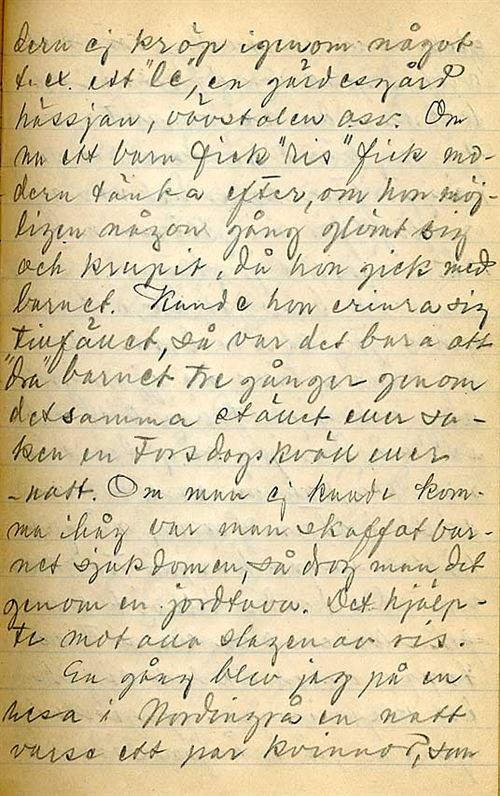 dern ej kröp igenom något
t. ex. ett "le", en gärdesgård
hässjan, vävstolen osv. Om
nu ett barn fick "ris" fick mo-
dern tänka efter, om hon möj-
ligen någon gång glömt sig
och krupit, då hon gick med
barnet. Kunde hon erinra sig
tillfället, så var det bara att
"dra" barnet tre gånger genom
detsamma stället eller sa-
ken en Torsdagskväll eller
-natt. Om man ej kunde kom-
ma ihåg var man skaffat bar-
net sjukdomen, så drog man det
genom en jordtuva. Det hjälp-
te mot alla slagen av ris.
En gång blev jag på en
resa i Nordingrå en natt
varse ett par kvinnor, som